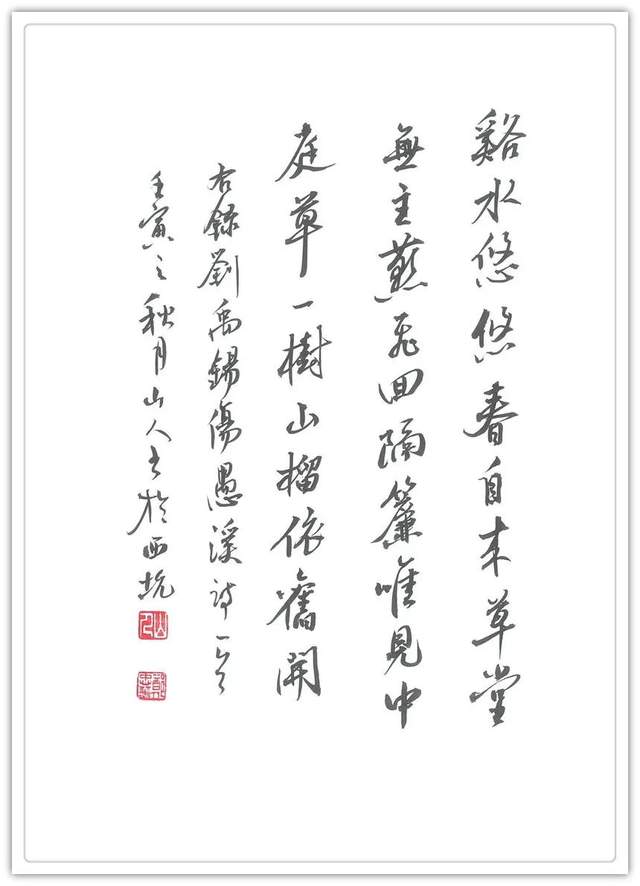 谿水悠悠春自来草堂
無主燕飛回隔簾唯見中
庭草一樹山榴依舊開
右錄劉禹錫傷愚溪詩一首
壬寅之秋月山人書於西坑